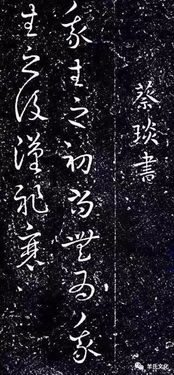 蔡琰書
我生之初尚無為我
生之後漢祚衰
羊氏文化